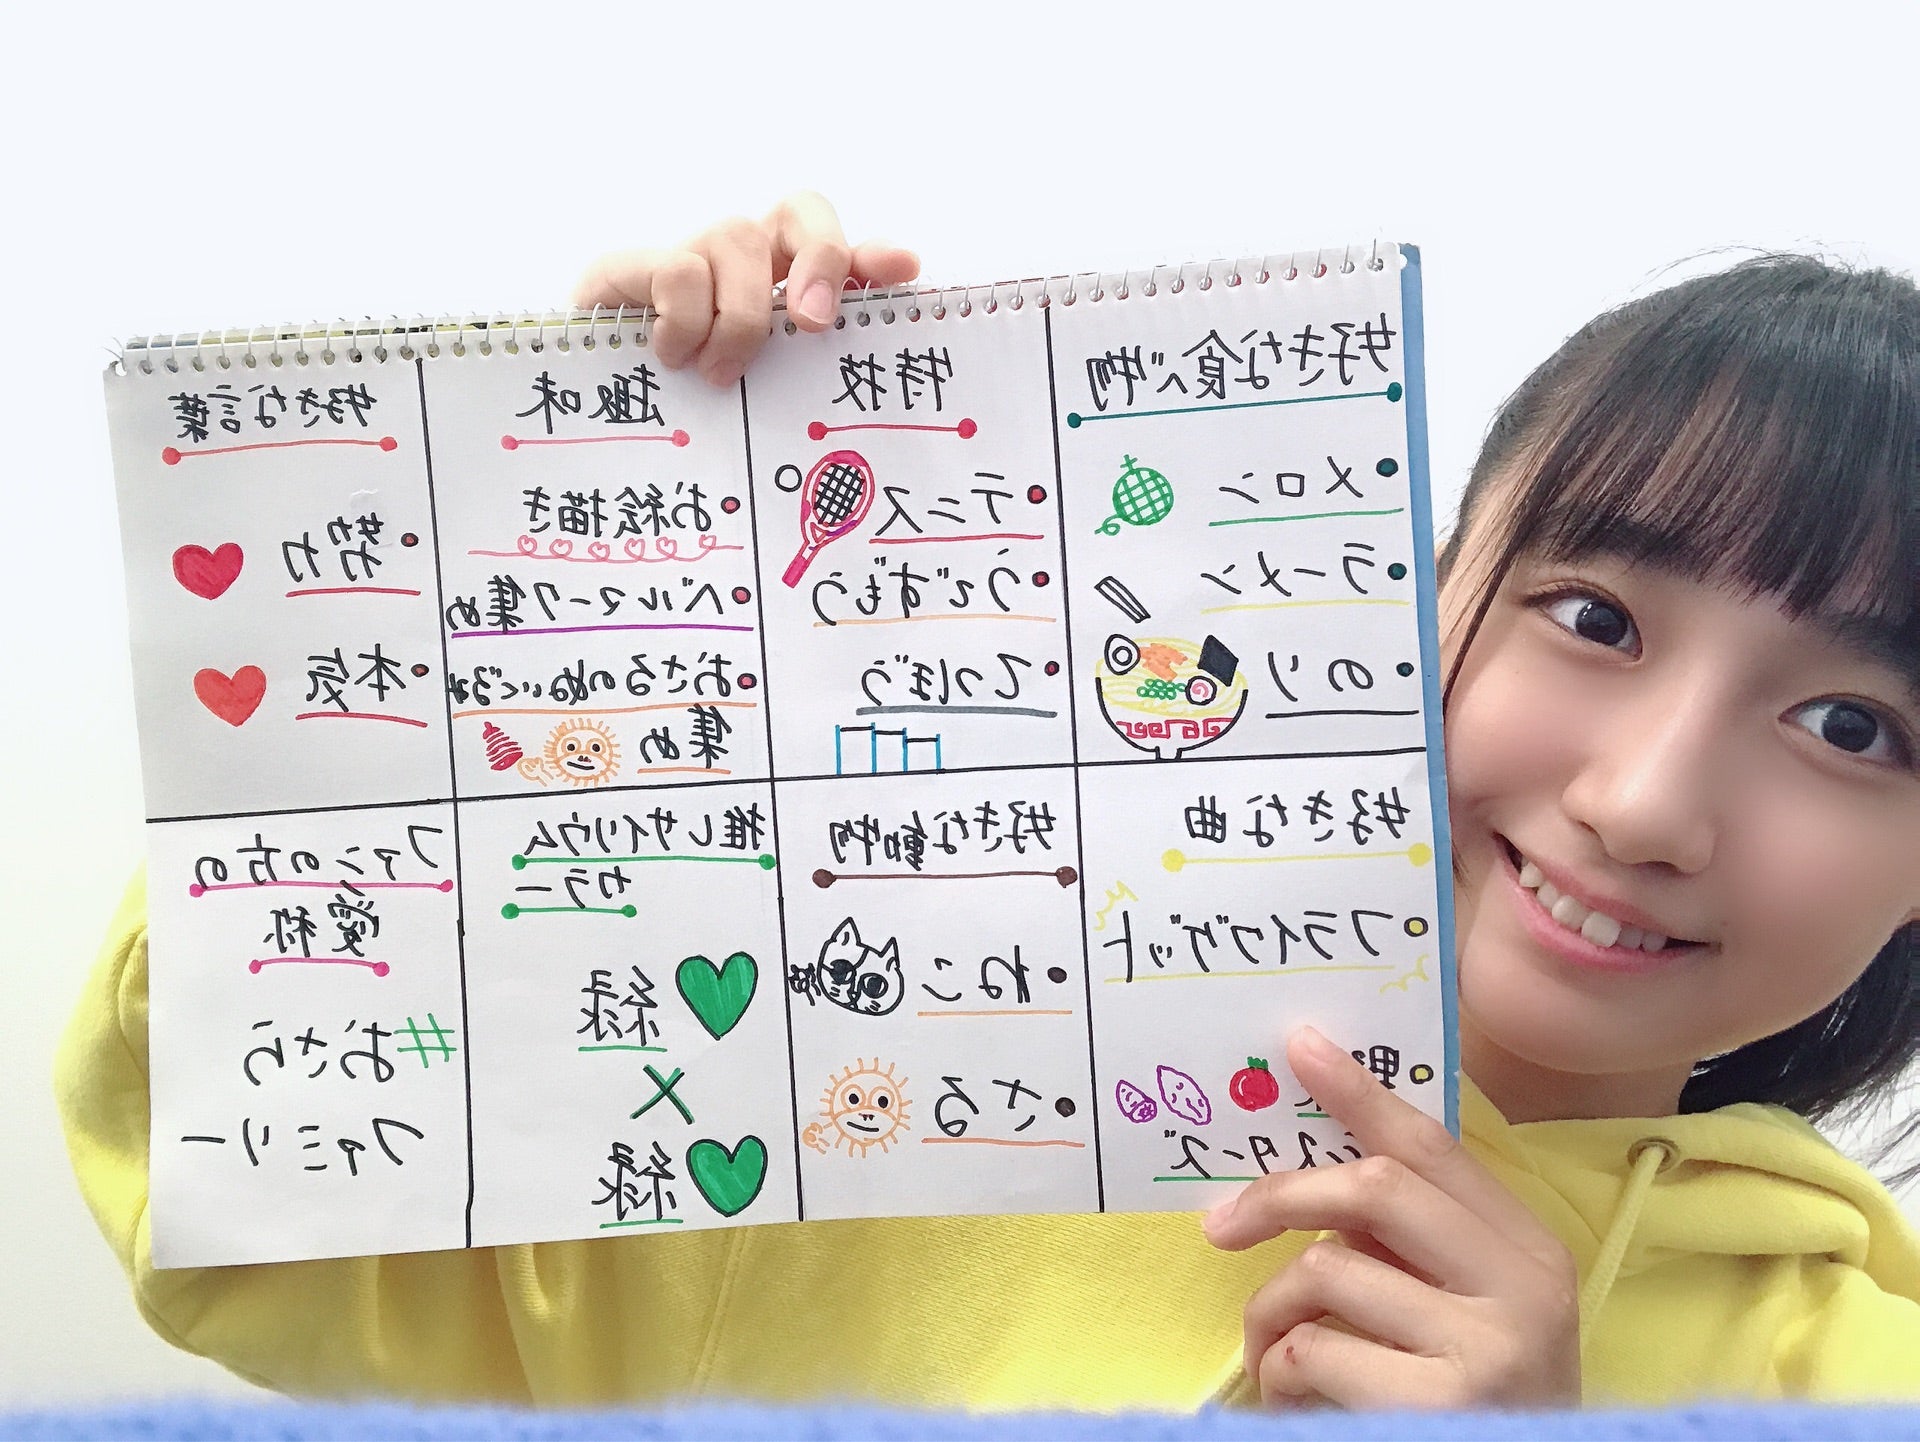 好きな食べ物
・メロン
・ラーメン
・のり
特技
・テニス
・うでずもう
・てつぼう
趣味
・お絵描き
・ベルマーク集め
・おさるのぬいぐるみ
集め
好きな言葉
・努力
・本気
好きな曲
・フライングゲット
・野
シスターズ
好きな動物
・ねこ
・さる
推しサイリウム
カラー
緑
×
緑
ファンの方の
愛称
#おさら
ファミリー